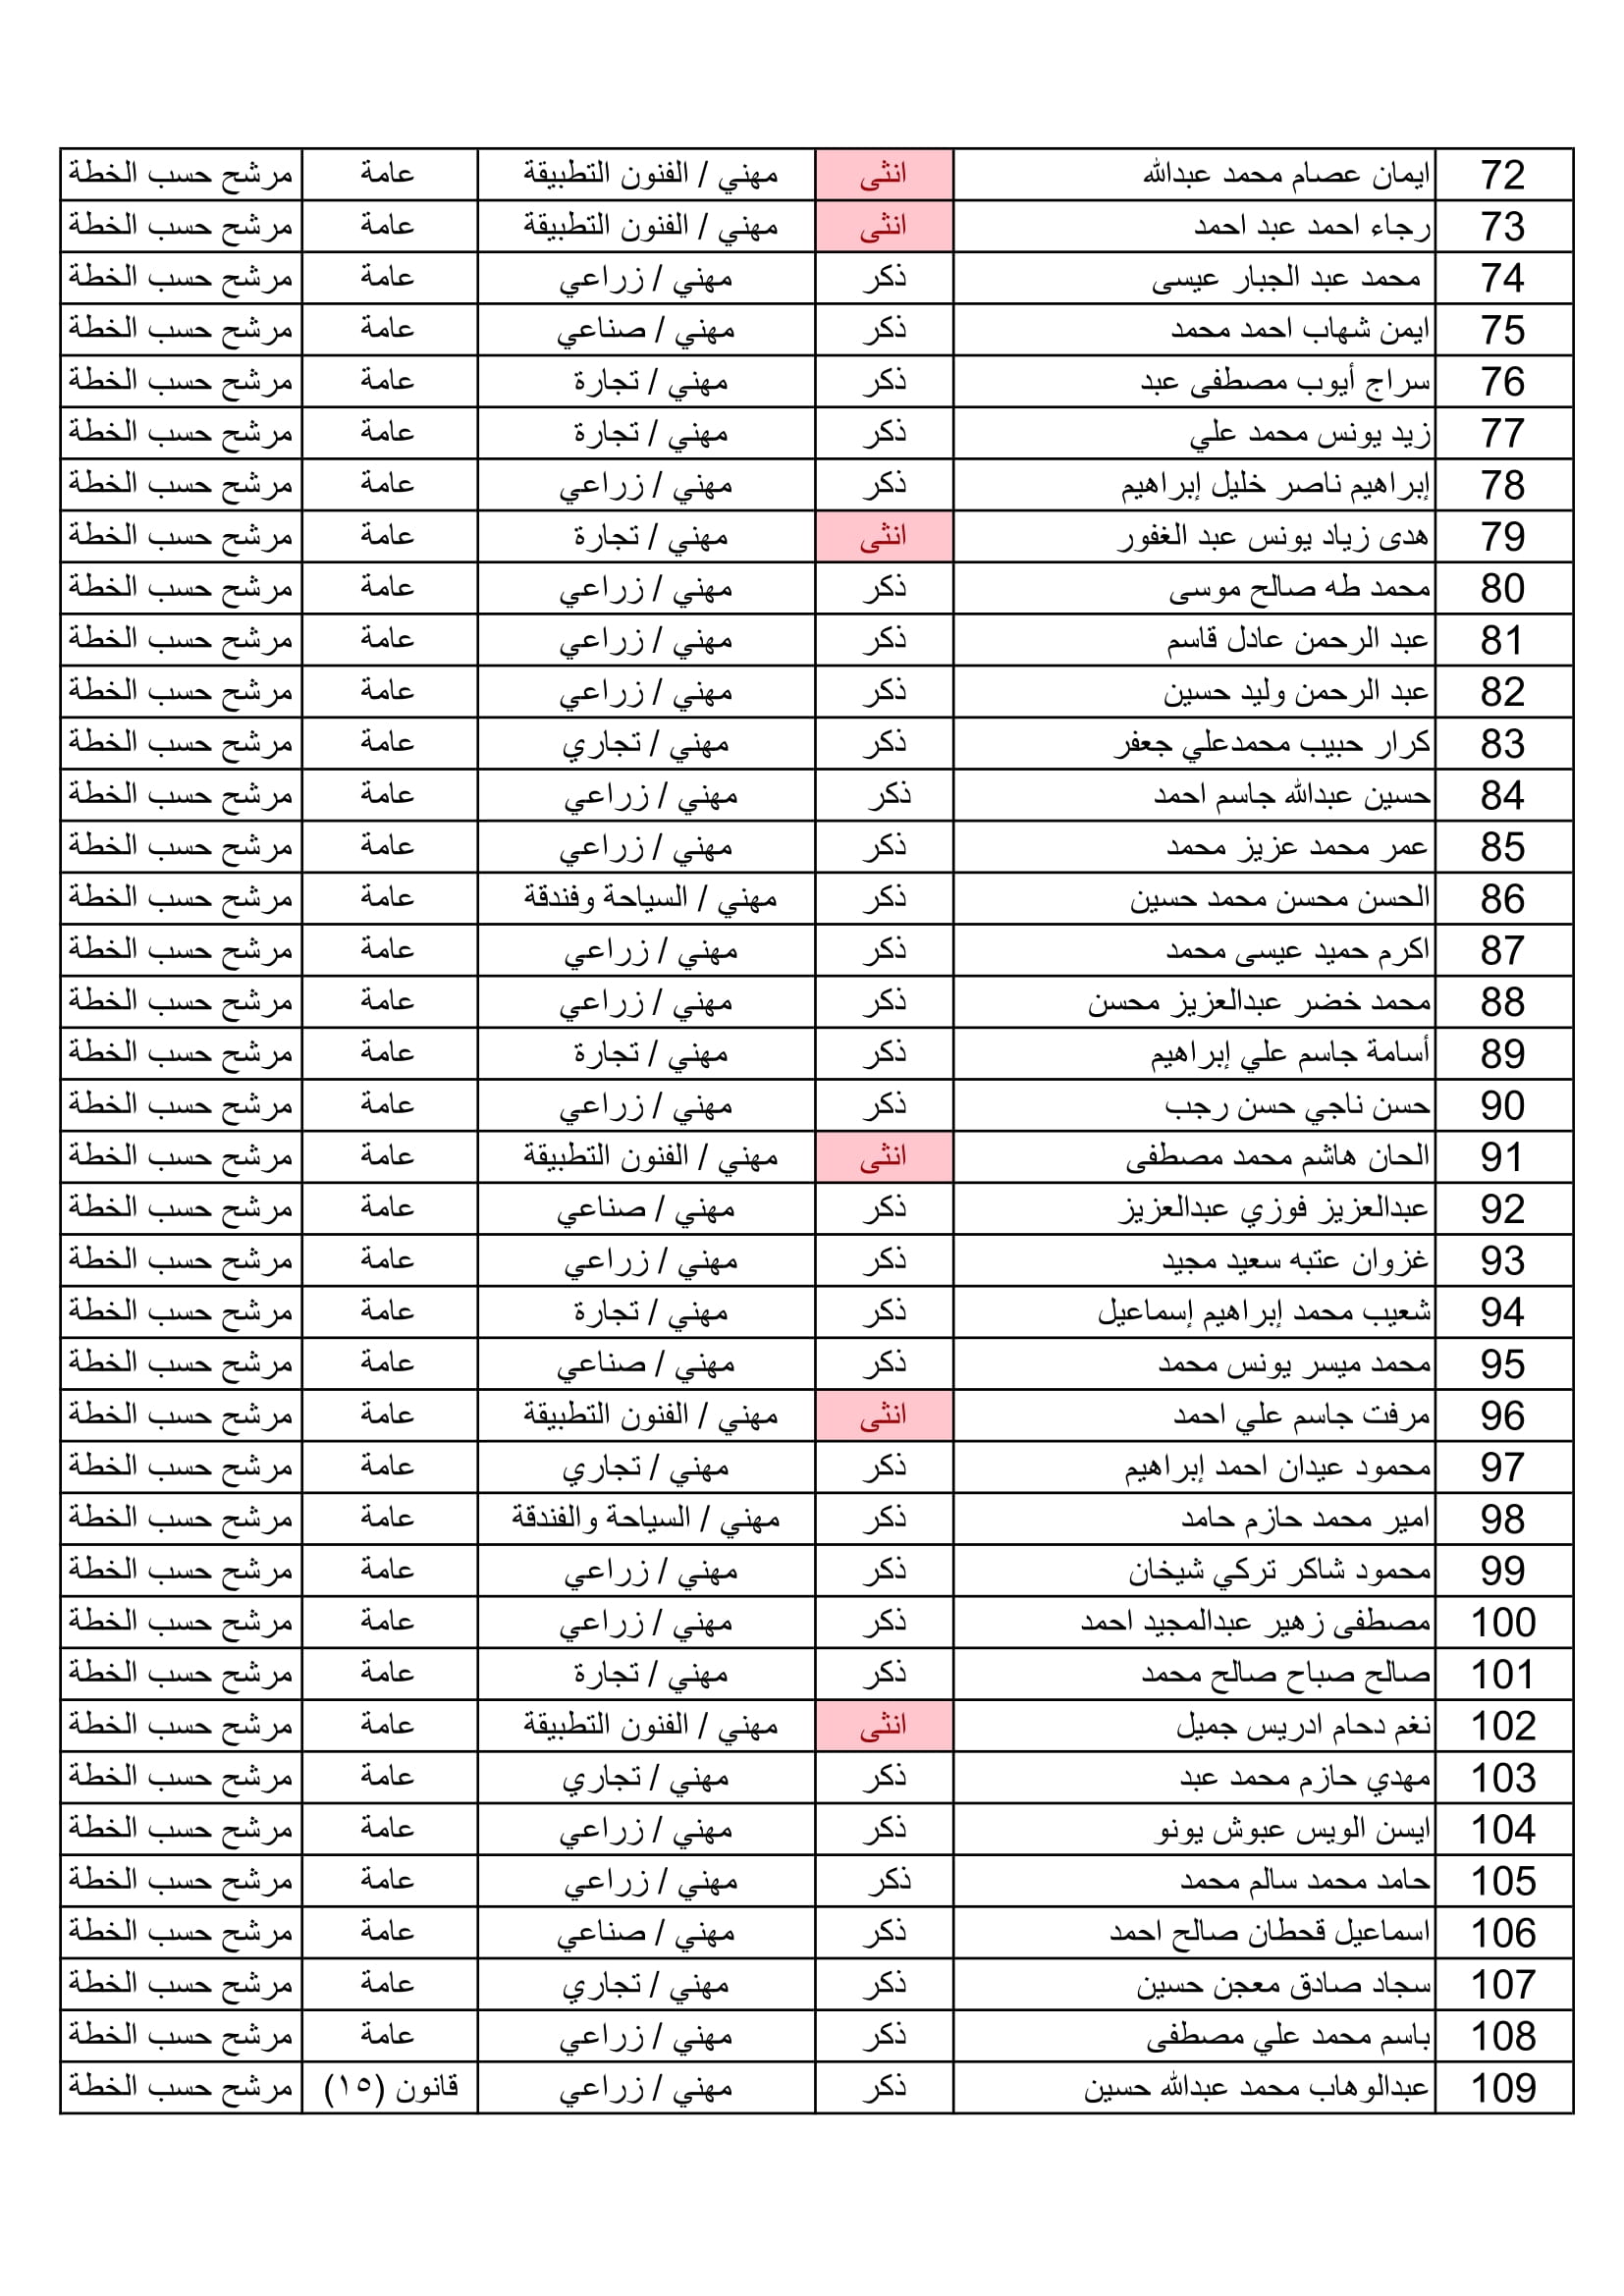 72 ايمان عصام محمد عبدالله انثى مهني / الفنون التطبيقة عامة مرشح حسب الخطة
73 رجاء احمد عبد احمد انثى مهني / الفنون التطبيقة عامة مرشح حسب الخطة
74 محمد عبد الجبار عيسى ذكر مهني / زراعي عامة مرشح حسب الخطة
75 ايمن شهاب احمد محمد ذكر مهني / صناعي عامة مرشح حسب الخطة
76 سراج أيوب مصطفى عبد ذكر مهني / تجارة عامة مرشح حسب الخطة
77 زيد يونس محمد علي ذكر مهني / تجارة عامة مرشح حسب الخطة
78 إبراهيم ناصر خليل إبراهيم ذكر مهني / زراعي عامة مرشح حسب الخطة
79 هدى زياد يونس عبد الغفور انثى مهني / تجارة عامة مرشح حسب الخطة
80 محمد طه صالح موسى ذكر مهني / زراعي عامة مرشح حسب الخطة
81 عبد الرحمن عادل قاسم ذكر مهني / زراعي عامة مرشح حسب الخطة
82 عبد الرحمن وليد حسين ذكر مهني / زراعي عامة مرشح حسب الخطة
83 كرار حبيب محمدعلي جعفر ذكر مهني / تجاري عامة مرشح حسب الخطة
84 حسين عبدالله جاسم احمد ذكر مهني / زراعي عامة مرشح حسب الخطة
85 عمر محمد عزيز محمد ذكر مهني / زراعي عامة مرشح حسب الخطة
86 الحسن محسن محمد حسين ذكر مهني / السياحة وفندقة عامة مرشح حسب الخطة
87 اكرم حميد عيسى محمد ذكر مهني / زراعي عامة مرشح حسب الخطة
88 محمد خضر عبدالعزيز محسن ذكر مهني / زراعي عامة مرشح حسب الخطة
89 أسامة جاسم علي إبراهيم ذكر مهني / تجارة عامة مرشح حسب الخطة
90 حسن ناجي حسن رجب ذكر مهني / زراعي عامة مرشح حسب الخطة
91 الحان هاشم محمد مصطفى انثى مهني / الفنون التطبيقة عامة مرشح حسب الخطة
92 عبدالعزيز فوزي عبدالعزيز ذكر مهني / صناعي عامة مرشح حسب الخطة
93 غزوان عتبه سعيد مجيد ذكر مهني / زراعي عامة مرشح حسب الخطة
94 شعيب محمد إبراهيم إسماعيل ذكر مهني / تجارة عامة مرشح حسب الخطة
95 محمد ميسر يونس محمد ذكر مهني / صناعي عامة مرشح حسب الخطة
96 مرفت جاسم علي احمد انثى مهني / الفنون التطبيقة عامة مرشح حسب الخطة
97 محمود عيدان احمد إبراهيم ذكر مهني / تجاري عامة مرشح حسب الخطة
98 امير محمد حازم حامد ذكر مهني / السياحة والفندقة عامة مرشح حسب الخطة
99 محمود شاكر تركي شيخان ذكر مهني / زراعي عامة مرشح حسب الخطة
100 مصطفى زهير عبدالمجيد احمد ذكر مهني / زراعي عامة مرشح حسب الخطة
101 صالح صباح صالح محمد ذكر مهني / تجارة عامة مرشح حسب الخطة
102 نغم دحام ادريس جميل انثى مهني / الفنون التطبيقة عامة مرشح حسب الخطة
103 مهدي حازم محمد عبد ذكر مهني / تجاري عامة مرشح حسب الخطة
104 ايسن الويس عبوش يونو ذكر مهني / زراعي عامة مرشح حسب الخطة
105 حامد محمد سالم محمد ذكر مهني / زراعي عامة مرشح حسب الخطة
106 اسماعيل قحطان صالح احمد ذكر مهني / صناعي عامة مرشح حسب الخطة
107 سجاد صادق معجن حسين ذكر مهني / تجاري عامة مرشح حسب الخطة
108 باسم محمد علي مصطفى ذكر مهني / زراعي عامة مرشح حسب الخطة
109 عبدالوهاب محمد عبدالله حسين ذكر مهني / زراعي قانون (١٥) مرشح حسب الخطة